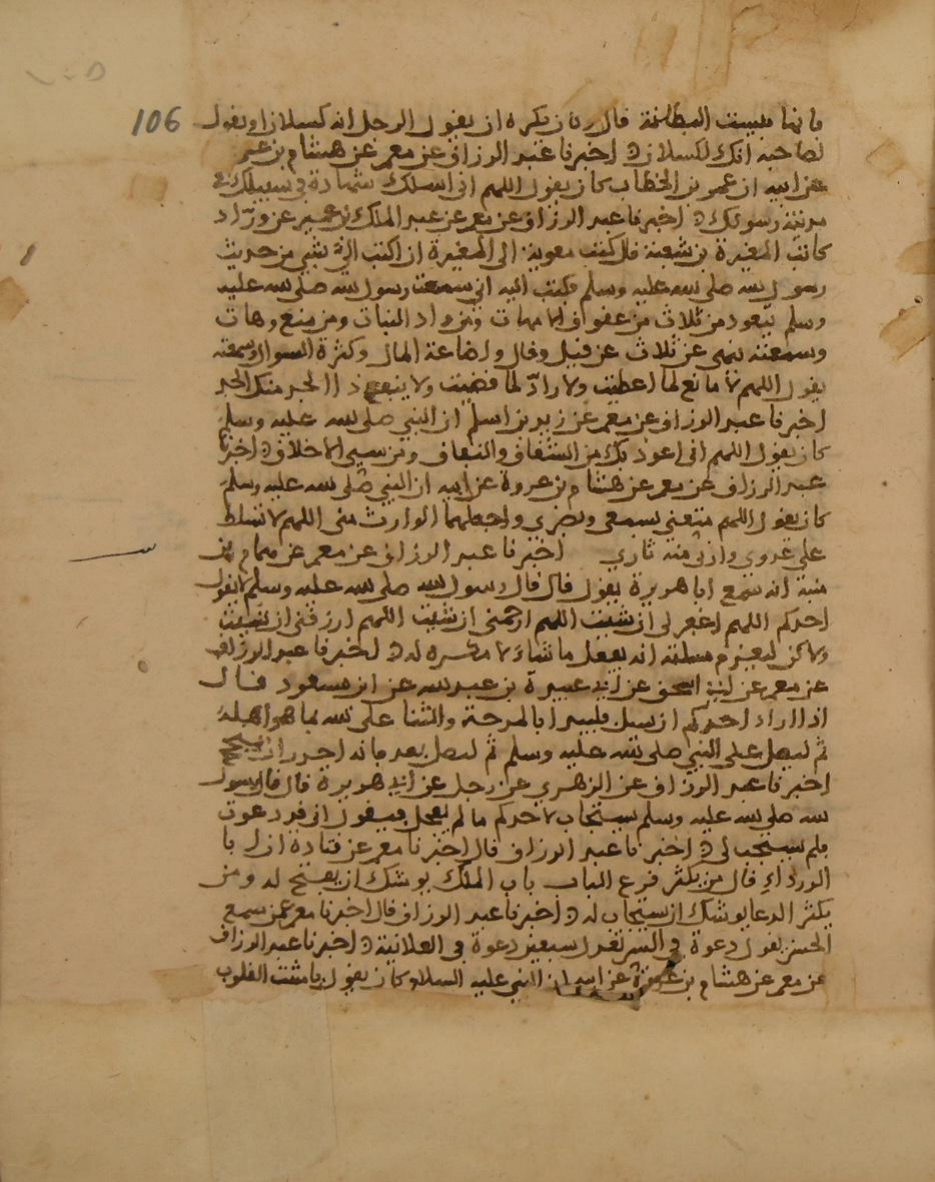 106
فانها بيست البطانة قال وكان يكره ان يقول الرجل انه كسلان او يقول
لصاحبه انك لكسلان اخبرنا عبد الرزاق عن معمر عن هشام بن عمر
عن ابيه ان عمر بن الخطاب كان يقول اللهم اني اسلك شهادة في سبيلك في
مدينة رسولك اخبرنا عبد الرزاق عن معمر عن عبد الملك بن عمير عن وراد
كاتب المغيرة بن شعبة قال كتب معوية الى المغيرة ان اكتب الي بشي من حديث
رسول لله صلى لله عليه وسلم فكتب اليه اني سمعت رسول لله صلى لله عليه
وسلم يتعوذ من ثلاث من عقوق الامهات ومن واد البنات ومن منع وهات
وسمعته ينهى عن ثلاث عن قيل وقال واضاعة المال وكثرة السوال وسمعته
يقول اللهم لا مانع لما اعطيت ولا راد لما قضيت ولا ينفع ذا الجد منك الجد
اخبرنا عبد الرزاق عن معمر عن زيد بن اسلم ان النبي صلى لله عليه وسلم
كان يقول اللهم اني اعوذ بك من الشقاق والنفاق ومن سيي الاخلاق اخبرنا
عبد الرزاق عن معمر عن هشام بن عروة عن ابيه ان النبي صلى لله عليه وسلم
كان يقول اللهم متعني بسمعي وبصري واجعلهما الوارث مني اللهم لا تسلط
علي عدوي وارني منه ثاري اخبرنا عبد الرزاق عن معمر عن همام بن
منبه انه سمع ابا هريرة يقول قال قال رسول لله صلى لله عليه وسلم لا يقول
احدكم اللهم اغفر لي ان شيت اللهم ارحمني ان شيت اللهم ارزقني ان شيت
ولاكن ليعزم مسلته انه يفعل ما شاء لا مكره له اخبرنا عبد الرزاق
عن معمر عن ابي اسحق عن ابي عبيدة بن عبد لله عن ابن مسعود قال
اذا اراد احدكم ان يسل فليبدا بالمدحة والثنا على لله بما هو اهله
ثم ليصل على النبي صلى لله عليه وسلم ثم ليسل بعد فانه اجدر ان ينجح
اخبرنا عبد الرزاق عن الزهري عن رجل عن ابي هريرة قال قال رسول
لله صلى لله عليه وسلم يستجاب لاحدكم ما لم يعجل فيقول اني قد دعوت
فلم يستجب لي اخبرنا عبد الرزاق قال اخبرنا معمر عن قتادة ان ابا
الدرداء قال من يكثر قرع الباب باب الملك يوشك ان يفتح له ومن
يكثر الدعا يوشك ان يستجاب له اخبرنا عبد الرزاق قال اخبرنا معمر عمن سمع
الحسن يقول دعوة في السر تعدل سبعين دعوة في العلانية اخبرنا عبد الرزاق
عن معمر عن هشام بن عروة عن ابيه ان النبي عليه السلام كان يقول يا مثبت القلوب